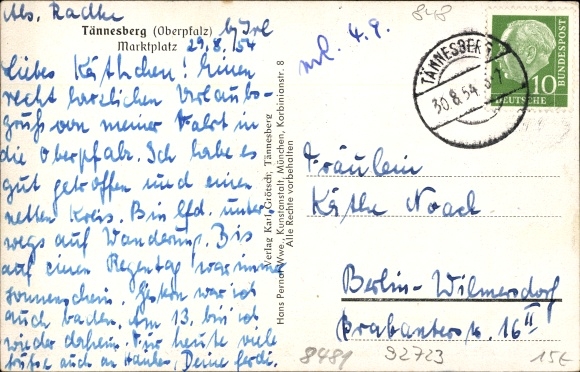 Abs. Radke
Tännesberg (Oberpfalz)
Marktplatz 29.8.54
Liebes Käthchen! Einen
recht herzlichen Urlaubs-
gruß von meiner Fahrt in
die Oberpfalz. Ich habe es
gut getroffen und einen
netten Kreis. Bin lfd. unter-
wegs auf Wanderung. Bis
auf einen Regentag war immer
Sonnenschein. Gestern war ich
auch baden. Am 13. bin ich
wieder daheim. Für heute viele
Grüße auch an Deine
Verlag Karl Grötsch, Tännesberg
Hans Pernat Wwe., Kunstanstalt, München, Korbinianstr. 8
Alle Rechte vorbehalten
4.9.
848
TÄNNESBERG
30.8.54
10
DEUTSCHE
BUNDESPOST
Fräulein
Käthe Noack
Berlin-Wilmersdorf
Brabanterstr. 16 II
8481
92723
15€